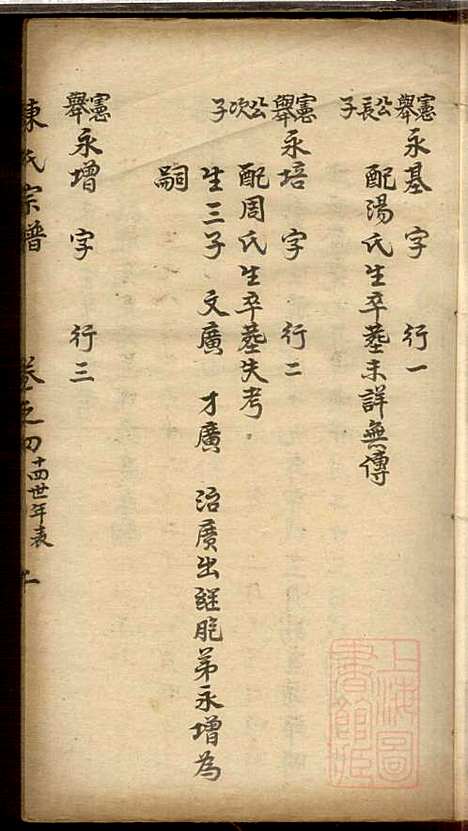 憲舉公長子 永基 字 行一
配湯氏生卒墓未詳無傳
憲舉公次子 永培 字 行二
配周氏生卒墓失考
生三子 文廣 才廣 治廣出繼胞弟永增為
嗣
憲舉 永增 字 行三
陳氏宗譜 卷之四 十四世年表
上海圖書館藏